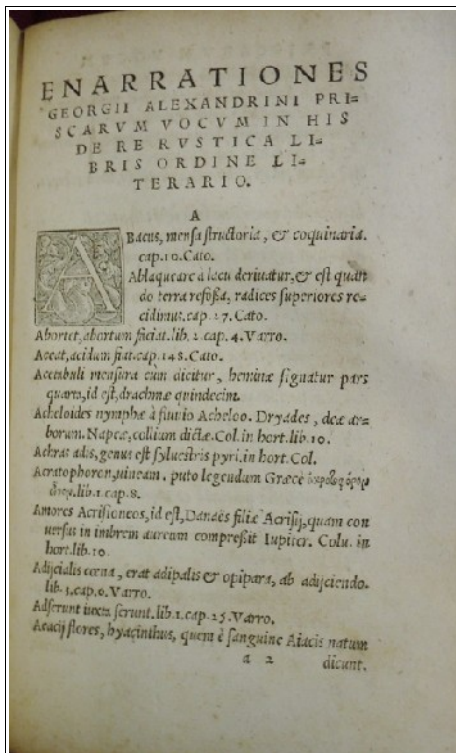 ENARRATIONES
GEORGII ALEXANDRINI PRI=
SCARVM VOCVM IN HIS
DE RE RVSTICA LI=
BRIS ORDINE LI=
TERARIO.
A
ABacus, mensa structoria, & coquinaria.
cap.10.Cato.
Ablaqueare à lacu deriuatur.& est quan
do terra refossa, radices superiores re=
cidimus.cap.27.Cato.
Aboriet, abortum faciat.lib.2.cap.4.Varro.
Aceat, acidum fiat.cap.148.Cato.
Acetabuli mensura cùm dicitur, heminæ signatur pars
quarta, id est, drachmæ quindecim.
Acheloides nymphæ à fluuio Acheloo. Dryades, deæ ar=
borum. Napeæ, collium dictæ.Col.in hort.lib.10.
Achras adis, genus est syluestris pyri.in hort.Col.
Acratophoron, uineam. puto legendum Græcè
lib.1.cap.8.
Amores Acrisioneos, id est, Danaës filiæ Acrisij, quam con
uersus in imbrem aureum compreßit Iupiter. Colu. in
hort.lib.10.
Adijcialis cœna, erat adipalis & opipara, ab adijciendo.
lib.3.cap.6.Varro.
Adserunt iuxta serunt.lib.1.cap.25.Varro.
Aeacij flores, hyacinthus, quem è sanguine Aiacis natum
a 2 dicunt.